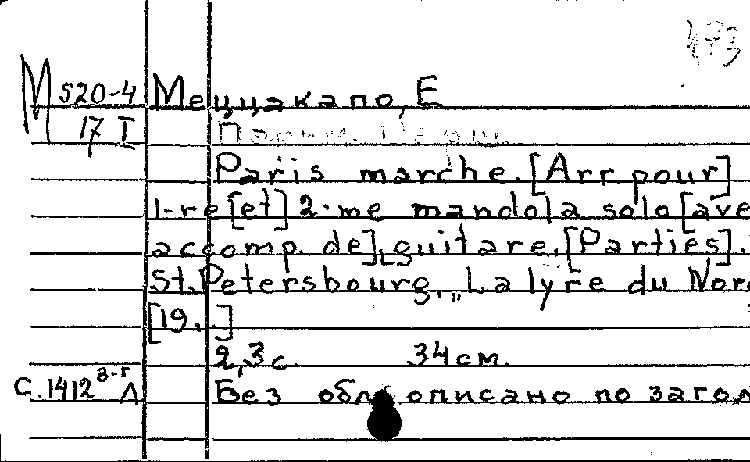 493
М 520-4 Меццакапо, Е
17 I
Paris marche. [Arr pour]
1-re [et] 2-me mandola solo [ave
accomp. de] guitare. [Parties].
St. Petersbourg, "La lyre du Nor
[19..]
2,3 с. 34 см.
С. 1412 в-г Л Без обл. описано по загол